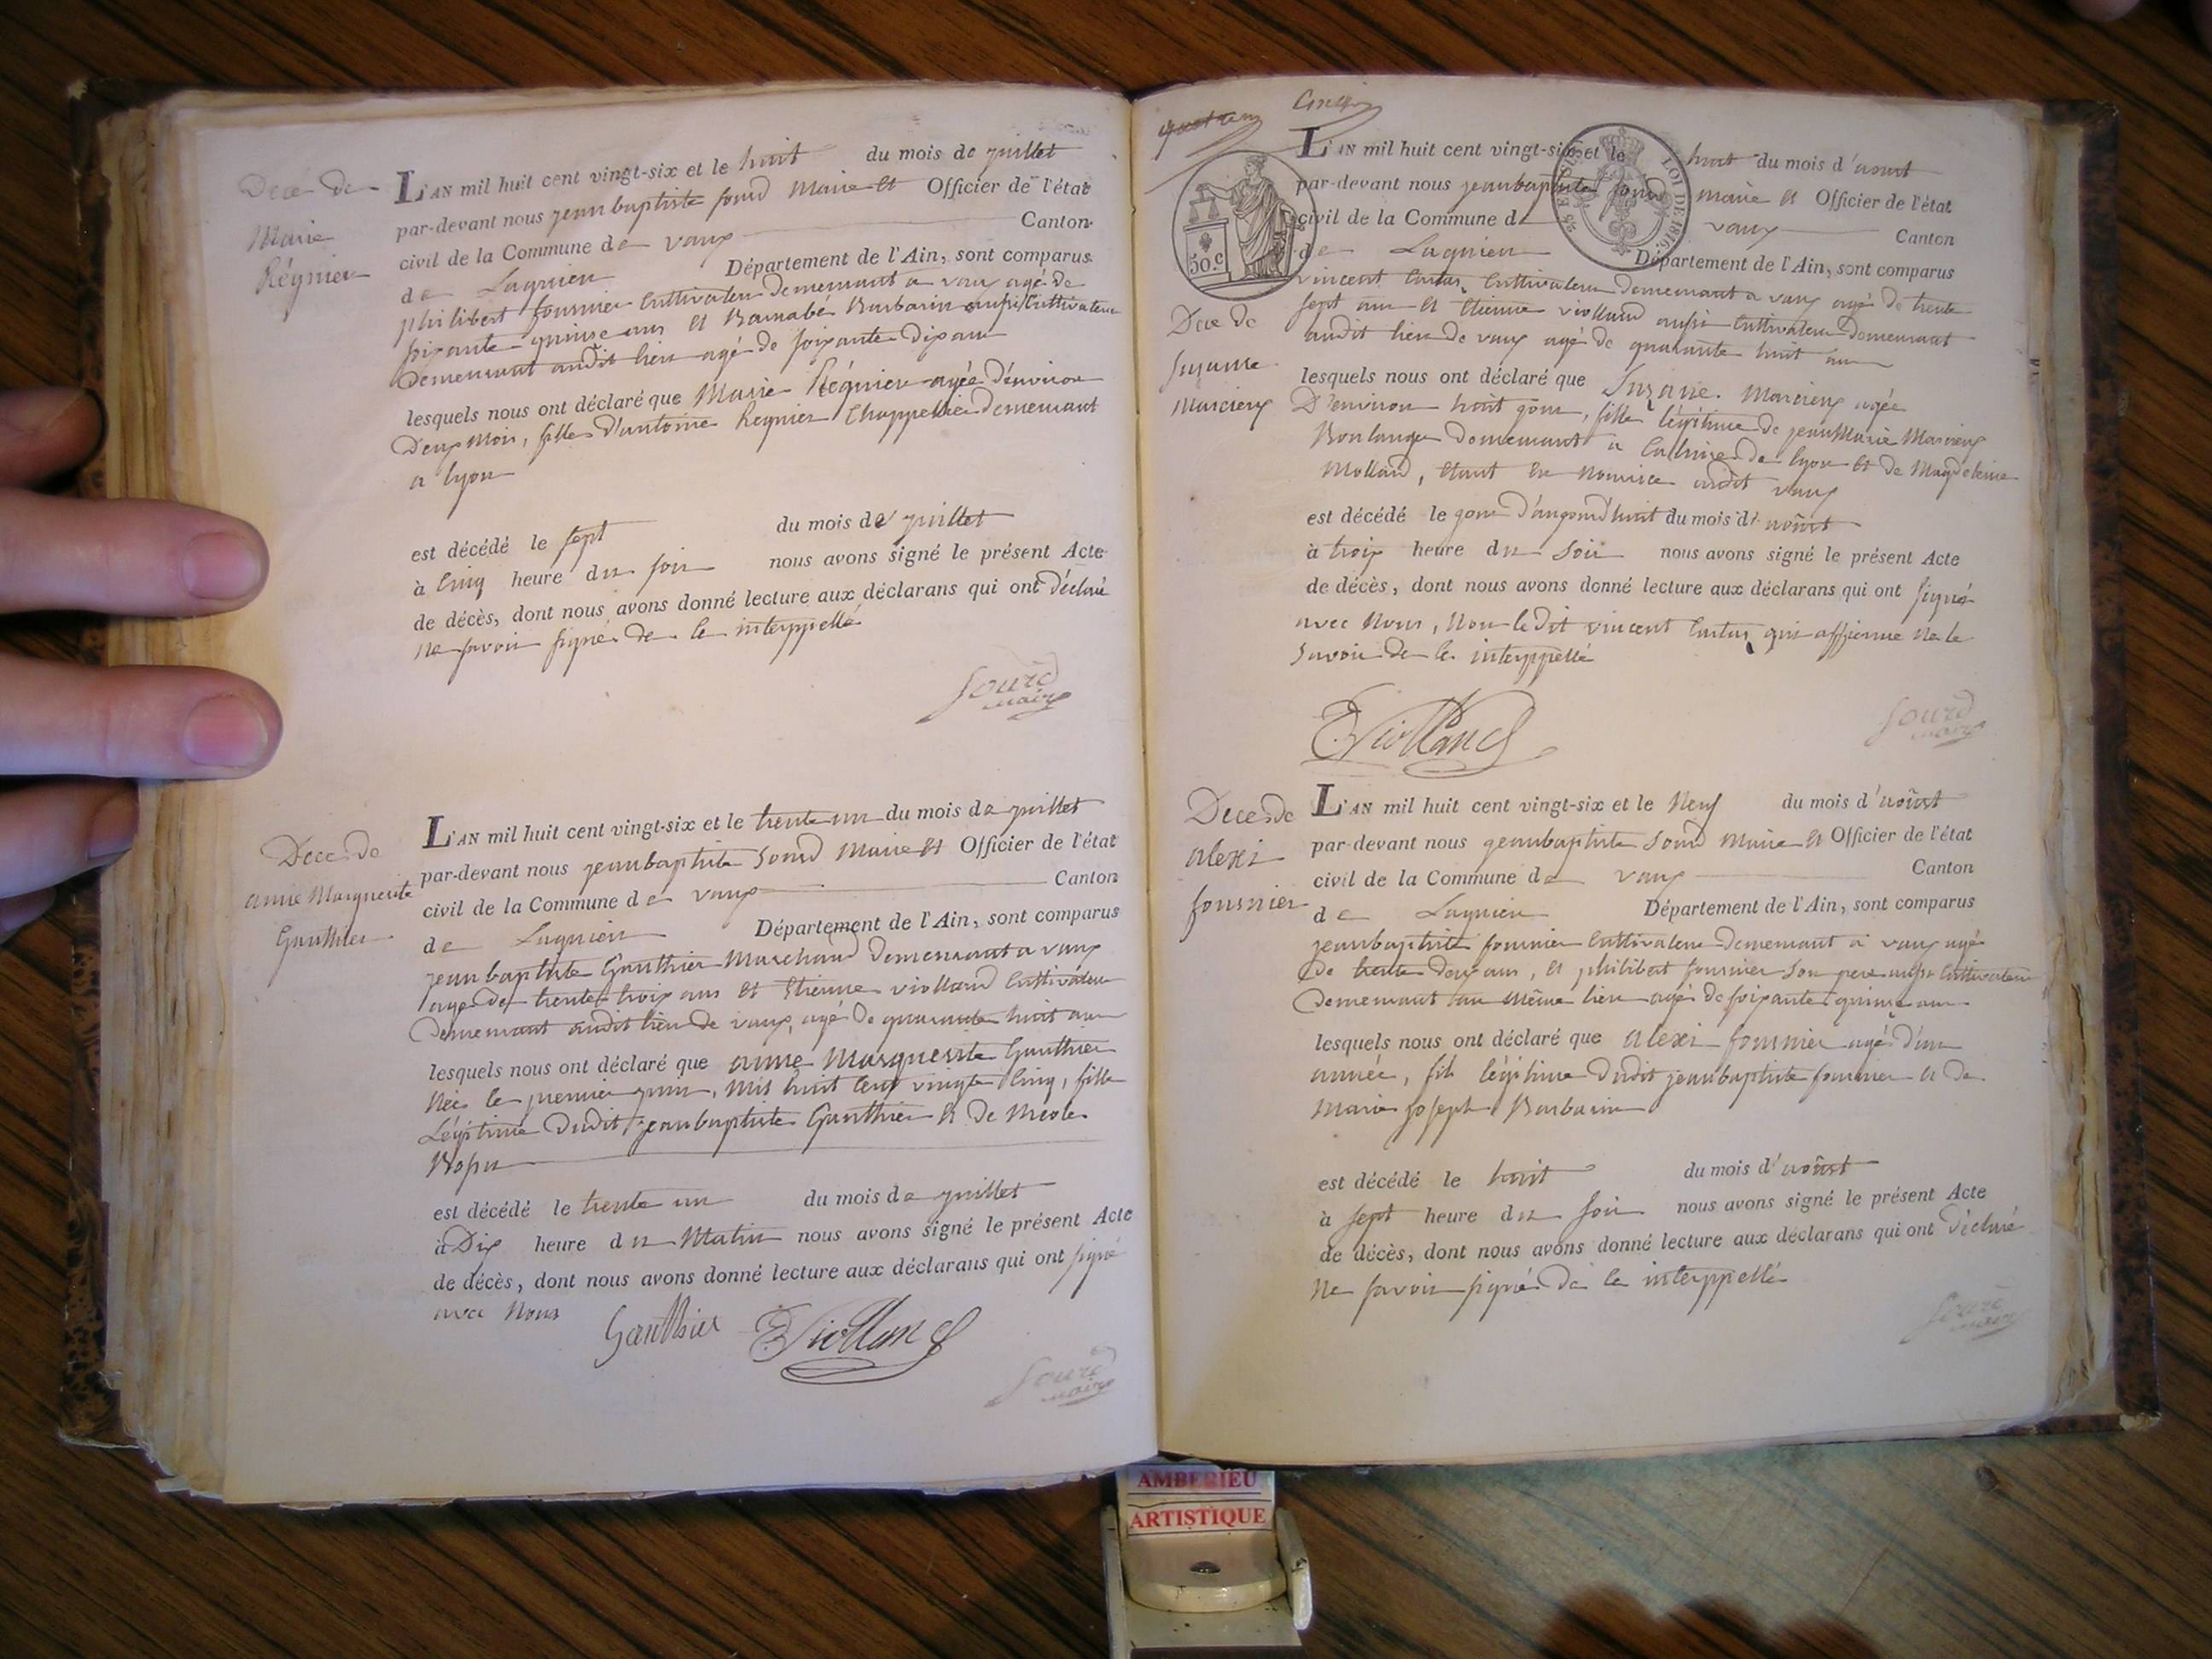 Decé de
Marie
Régnier
L'AN mil huit cent vingt-six et le huit du mois de juillet
par-devant nous jean baptiste sourd Maire et Officier de l'état
civil de la Commune de vaux Canton
de Lagnieu Département de l'Ain, sont comparus
philibert fournier Cultivateur demeurant a vaux agé de
soixante quinse ans et Barnabé Barbarin aussi Cultivateur
demeurant audit lieu agé de soixante dix ans
lesquels nous ont déclaré que Marie Régnier agée d'environ
Deux Mois, fille d'antoine Regnier Chappellier demeurant
a lyon
est décédé le sept du mois de juillet
à Cinq heure du soir nous avons signé le présent Acte
de décès, dont nous avons donné lecture aux déclarans qui ont déclaré
ne savoir signé de ce interppellé
Sourd
maire
Dece de
anne Marguerite
Gauthier
L'AN mil huit cent vingt-six et le trente un du mois de juillet
par-devant nous jeanbaptiste Sourd Maire et Officier de l'état
civil de la Commune de vaux Canton
de Lagnieu Département de l'Ain, sont comparus
jean baptiste Gauthier Marchand demeurant a vaux
agé de trente trois ans et Etienne violland Cultivateur
demeurant audit lieu de vaux, agé de quarante huit ans
lesquels nous ont déclaré que anne Marguerite Gauthier
Née le premier juin, mis huit cent vingte Cinq, fille
Légitime dudit jeanbaptiste Gauthier et de Nicole
est décédé le trente un du mois de juillet
à Dix heure du Matin nous avons signé le présent Acte
de décès, dont nous avons donné lecture aux déclarans qui ont signé
avec Nous
Gauthier EViolland
Sourd
maire
Cinq
50 c
EN SUS
LOI DE 1816
L'AN mil huit cent vingt-six et le huit du mois d'aout
par-devant nous jeanbaptiste sourd maire et Officier de l'état
civil de la Commune de vaux Canton
de Lagnieu Département de l'Ain, sont comparus
vincent Cultivateur demeurant a vaux agé de trente
sept ans et Etienne violland aussi Cultivateur demeurant
audit lieu de vaux agé de quarante huit ans
Dece de
Suzanne
Marcieux
lesquels nous ont déclaré que Suzane Marcieux agée
D'environ huit jour, fille légitime de jean Marie Marcieux
Boulanger demeurant a de lyon et de Magdeleine
Mollard, Etant en Nourrice audit vaux
est décédé le jour d'aujourd'huit du mois d'aoûst
à trois heure du Soir nous avons signé le présent Acte
de décès, dont nous avons donné lecture aux déclarans qui ont signé
avec Nous, Non ledit vincent qui affirme ne le
Savoir de ce interppellé
EViolland
Sourd
maire
Dece de
alexi
fournier
L'AN mil huit cent vingt-six et le Neuf du mois d'aoûst
par-devant nous jeanbaptiste Sourd Maire et Officier de l'état
civil de la Commune de vaux Canton
de Lagnieu Département de l'Ain, sont comparus
jeanbaptiste fournier Cultivateur demeurant a vaux agé
de trente deux ans, et philibert fournier Son pere aussi Cultivateur
demeurant au même lieu agé de soixante quinse ans
lesquels nous ont déclaré que alexi fournier agé d'une
année, fils légitime dudit jeanbaptiste fournier et de
Marie joseph Barbarin
est décédé le huit du mois d'aoûst
à sept heure du soir nous avons signé le présent Acte
de décès, dont nous avons donné lecture aux déclarans qui ont déclaré
ne savoir signé de ce interppellé
Sourd
maire
AMBERIEU
ARTISTIQUE